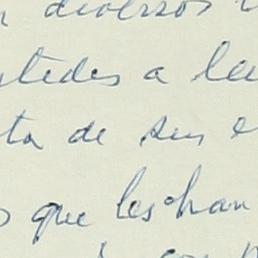 diversos
stedes a le
ta de sus e
que les han
con